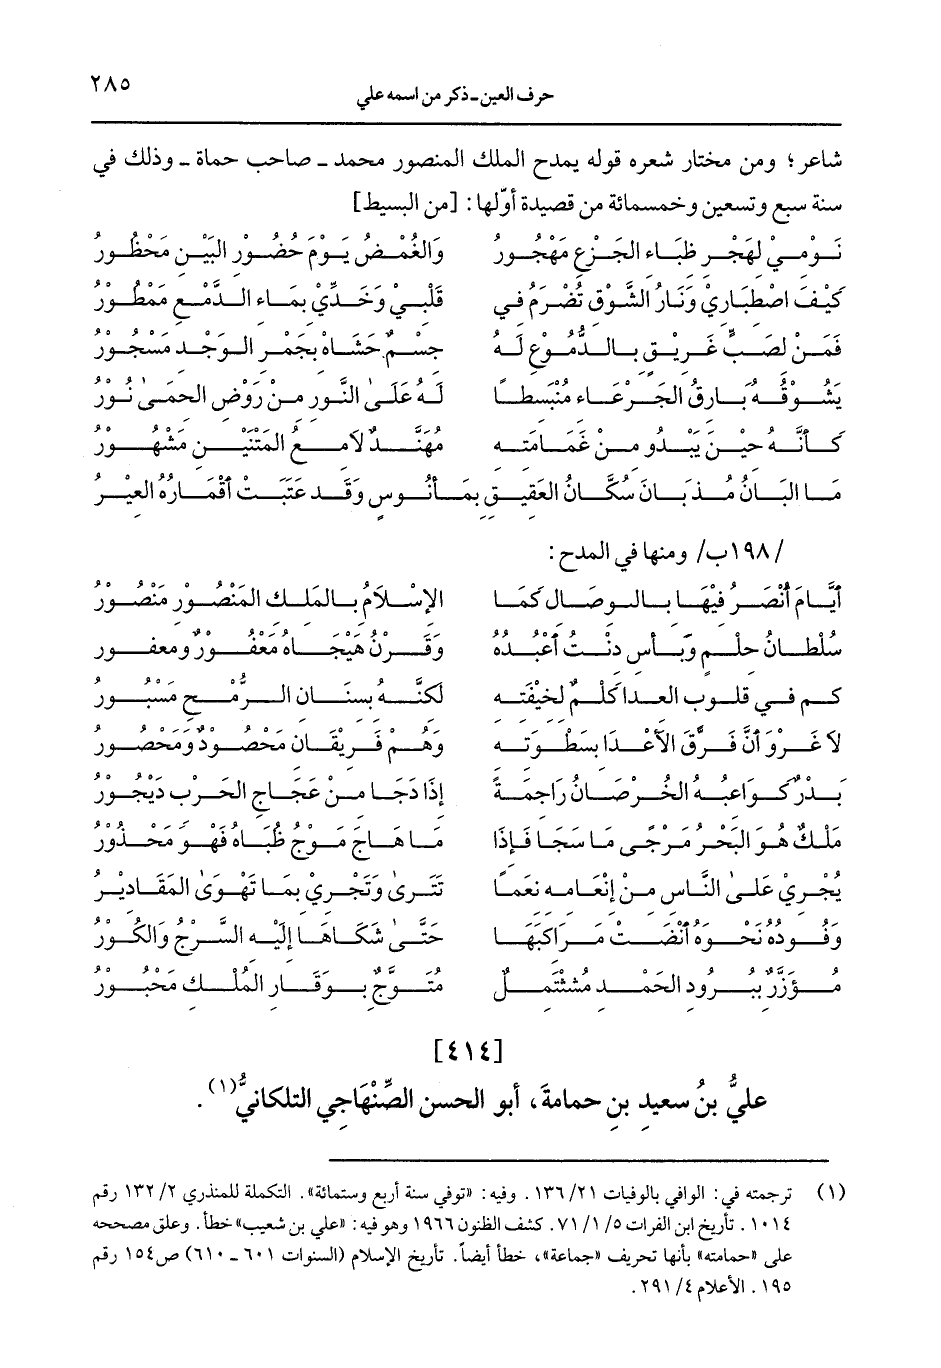 حرف العين ـ ذكر من اسمه علي ٢٨٥
شاعر؛ ومن مختار شعره قوله يمدح الملك المنصور محمد ـ صاحب حماة ـ وذلك في
سنة سبع وتسعين وخمسمائة من قصيدة أوّلها: [من البسيط]
نَوْمِيْ لِهَجْرِ ظِبَاءِ الجَزْعِ مَهْجُورُ وَالغُمْضُ يَوْمَ حُضُورِ البَيْنِ مَحْظُورُ
كَيْفَ اصْطِبَارِيْ وَنَارُ الشَّوْقِ تُضْرَمُ فِي قَلْبِيْ وَخَدِّيْ بِمَاءِ الدَّمْعِ مَمْطُورُ
فَمَنْ لِصَبٍّ غَرِيْقٍ بِالدُّمُوعِ لَهُ جِسْمٌ حَشَاهُ بِجَمْرِ الوَجْدِ مَسْجُورُ
يَشُوْقُهُ بَارِقُ الجَرْعَاءِ مُبْتَسِطًا لَهُ عَلَىٰ النَّوْرِ مِنْ رَوْضِ الحِمَىٰ نُورُ
كَأَنَّهُ حِيْنَ يَبْدُو مِنْ غَمَامَتِهِ مُهَنَّدٌ لَامِعُ المَتْنَيْنِ مَشْهُورُ
مَا البَانُ مُذْ بَانَ سُكَّانُ العَقِيْقِ بِمَأْنُوسٍ وَقَدْ غَيَّبَتْ أَقْمَارُهُ العِيْرُ
/١٩٨ب/ ومنها في المدح:
أَيَّامَ أُنْصَرُ فِيْهَا بِالوِصَالِ كَمَا الإِسْلَامُ بِالمَلِكِ المَنْصُورِ مَنْصُورُ
سُلْطَانُ حِلْمٍ وَبَأْسٍ دَنْتُ أَعْبُدُهُ وَقَرْنُ هَيْجَاهُ مَعْفُورٌ ومعفورُ
كم في قلوب العدا كَلْمٌ لِخِيْفَتِهِ لَكِنَّهُ بِسِنَانِ الرُّمْحِ مَسْبُورُ
لَا غَرْوَ أَنْ فَرَّقَ الأَعْدَا بِسَطْوَتِهِ وَهُمْ فَرِيْقَانِ مَحْصُودٌ وَمَحْصُورُ
بَدْرٌ كَواعِبُهُ الخُرْصَانُ رَاجِمَةً إِذَا دَجَا مِنْ عَجَاجِ الحَرْبِ دَيْجُورُ
مَلْكٌ هُوَ البَحْرُ مَرْجَى مَا سَجَا فَإِذَا مَا هَاجَ مَوْجُ ظُبَاهُ فَهْوَ مَحْذُورُ
يُجْرِي عَلَىٰ النَّاسِ مِنْ إِنْعَامِهِ نِعَمًا تَتْرَىٰ وَتَجْرِيْ بِمَا تَهْوَىٰ المَقَادِيْرُ
وَفُودُهُ نَحْوَهُ أَنْضَتْ مَرَاكِبَهَا حَتَّىٰ شَكَاهَا إِلَيْهِ السَّرْجُ وَالكُورُ
مُؤَزَّرٌ بِبُرُودِ الحَمْدِ مُشْتَمِلٌ مُتَوَّجٌ بِوَقَارِ المُلْكِ مَحْبُورُ
[٤١٤]
عليُّ بنُ سعيدِ بنِ حمامةَ، أبو الحسن الصِّنْهَاجيِ التلكانيُّ(١).
(١) ترجمته في: الوافي بالوفيات ١٣٦/٢١. وفيه: «توفي سنة أربع وستمائة». التكملة للمنذري ١٣٢/٢ رقم
١٠١٤. تأريخ ابن الفرات ٧١/١/٥. كشف الظنون ١٩٦٦ وهو فيه: «علي بن شعيب» خطأ. وعلق مصححه
على «حمامته» بأنها تحريف «جماعة»، خطأ أيضاً. تأريخ الإسلام (السنوات ٦٠١ ـ ٦١٠) ص١٥٤ رقم
١٩٥. الأعلام ٢٩١/٤.